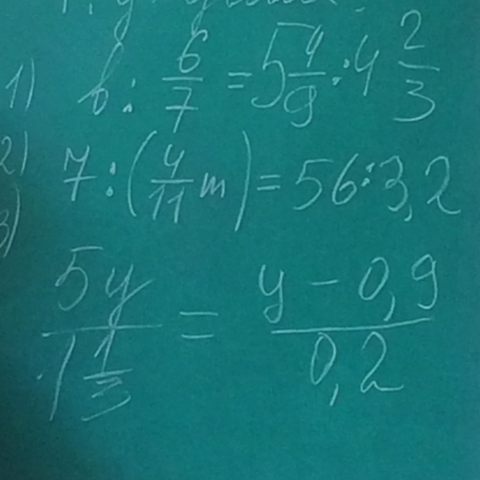 1) b : 6/7 = 5 4/9 : 4 2/3
2) 7 : (4/11 m) = 56 : 3,2
3) 5y / 1 1/3 = y - 0,9 / 0,2